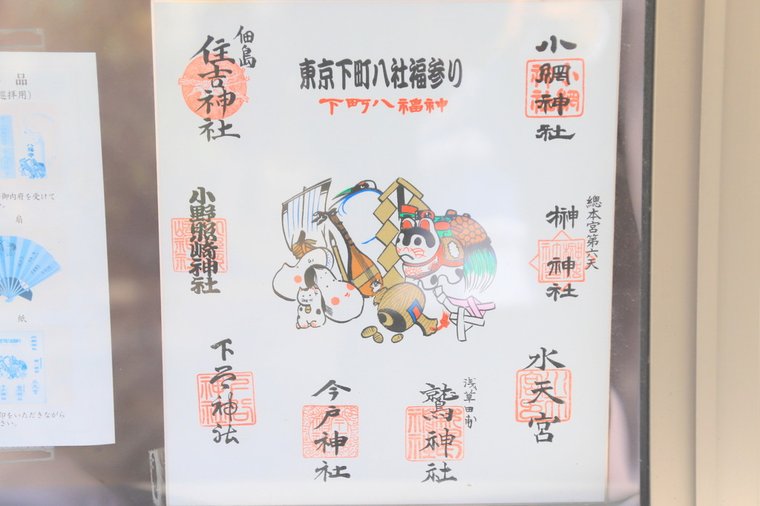 東京下町八社福参り
下町八福神
小網神社
總本宮第六天
榊神社
水天宮
浅草田甫
鷲神社
今戸神社
下谷神社
小野照崎神社
佃島
住吉神社
品
巡拝用)
御内府を受けて
扇
紙
印をいただきながら
さい。